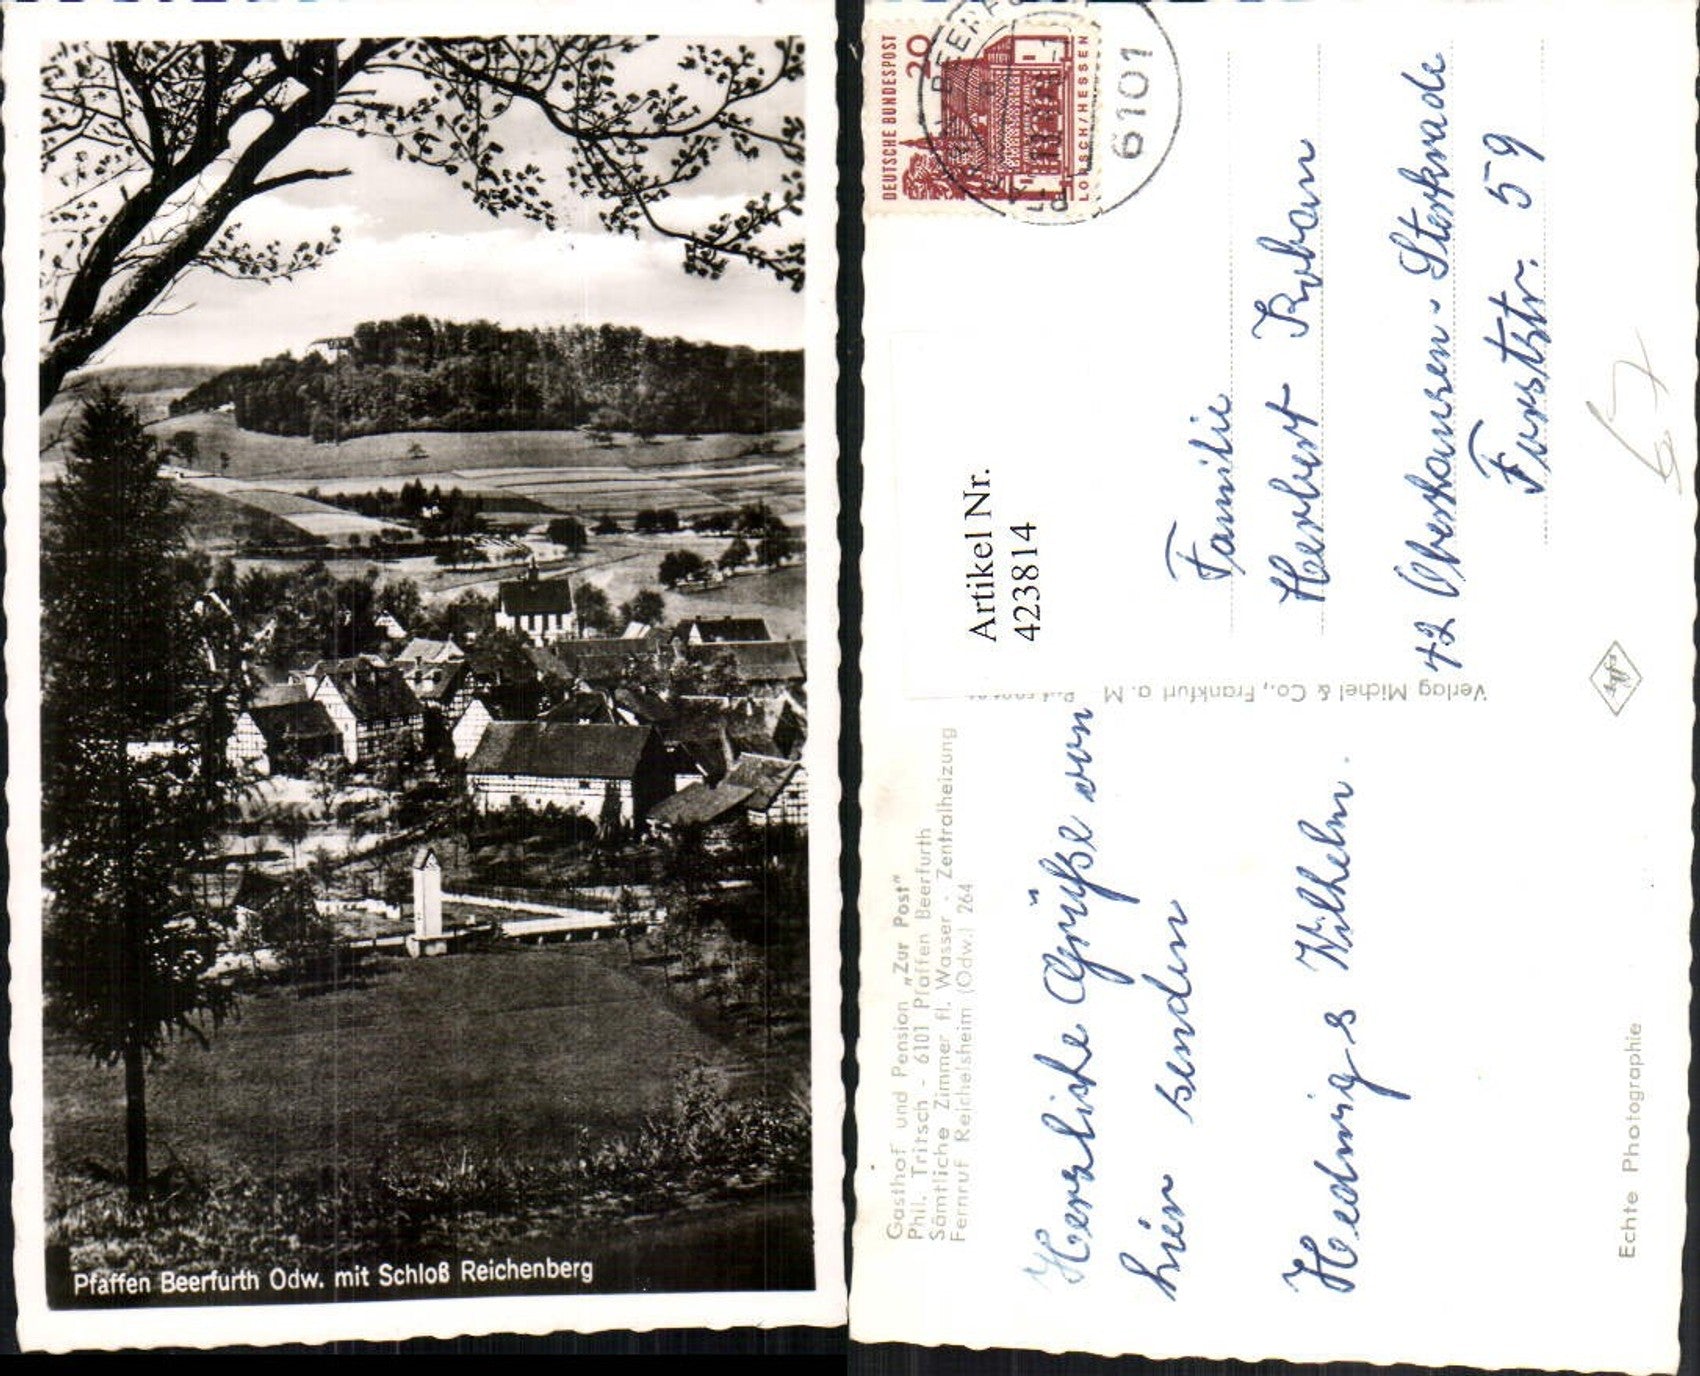 Pfaffen Beerfurth Odw. mit Schloß Reichenberg
Gasthof und Pension „Zur Post"
Phil. Tritsch - 6101 Pfaffen Beerfurth
Sämtliche Zimmer fl. Wasser - Zentralheizung
Fernruf Reichelsheim (Odw.) 264
Herzliche Grüße von
hier senden
Hedwig & Wilhelm.
Verlag Michel & Co., Frankfurt a. M.
Echte Photographie
Artikel Nr.
423814
DEUTSCHE BUNDESPOST
20
LORSCH/HESSEN
6101
Familie
Herbert
42 Oberhausen-Sterkrade
59
67